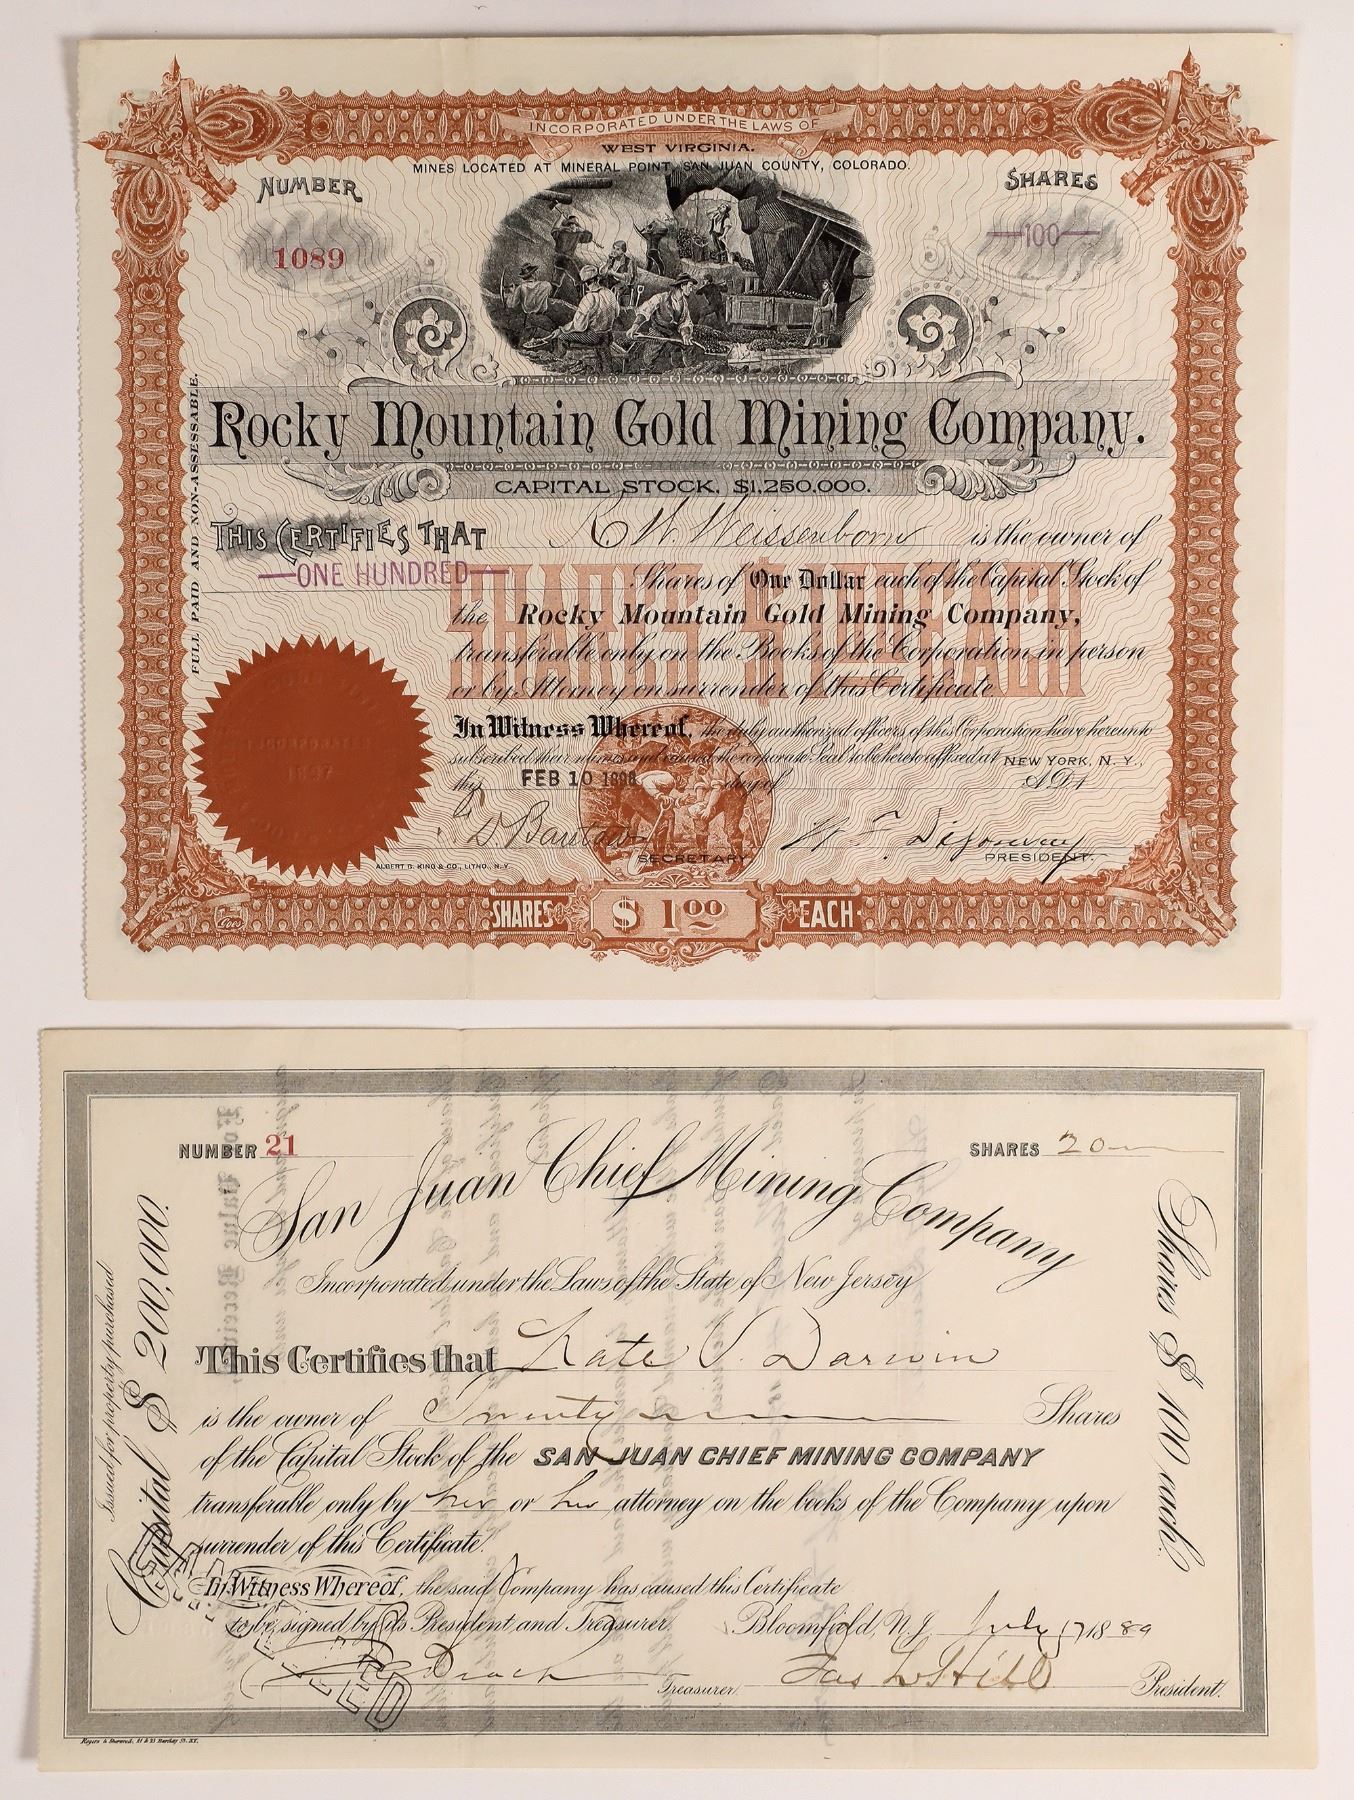 INCORPORATED UNDER THE LAWS OF
WEST VIRGINIA.
MINES LOCATED AT MINERAL POINT, SAN JUAN COUNTY, COLORADO.
NUMBER
SHARES
1089
100
Rocky Mountain Gold Mining Company.
CAPITAL STOCK, $1,250,000.
FULL PAID AND NON-ASSESSABLE.
THIS CERTIFIES THAT R. W. Weissenborn is the owner of
ONE HUNDRED Shares of One Dollar each of the Capital Stock of
the Rocky Mountain Gold Mining Company,
transferable only on the Books of the Corporation in person
or by Attorney on surrender of this Certificate
SHARES $1 EACH
In Witness Whereof, the duly authorized officers of this Corporation have hereunto
subscribed their names and caused the corporate Seal to be hereto affixed at NEW YORK, N.Y.,
this FEB 10 1898 day of A.D. 1
1897
SECRETARY
PRESIDENT.
ALBERT B. KING & CO., LITHO. N.Y.
SHARES $1.00 EACH
NUMBER 21
SHARES 20
San Juan Chief Mining Company
Incorporated under the Laws of the State of New Jersey
Issued for property purchased
Capital $200,000.
Shares $100 each.
This Certifies that Kate V. Darwin
is the owner of Twenty Shares
of the Capital Stock of the SAN JUAN CHIEF MINING COMPANY
transferable only by her or her attorney on the books of the Company upon
surrender of this Certificate.
In Witness Whereof, the said Company has caused this Certificate
to be signed by its President and Treasurer
Bloomfield, N.J. July 17 1889
Treasurer.
President.